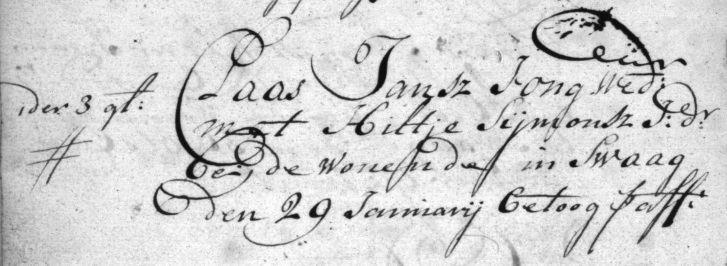 Claas Jansz Jong Wedr:
ider 3 gl: met Hiltje Sijmonsz J: dr
beijde Wonende in Swaag
den 29 Januarij Getoog